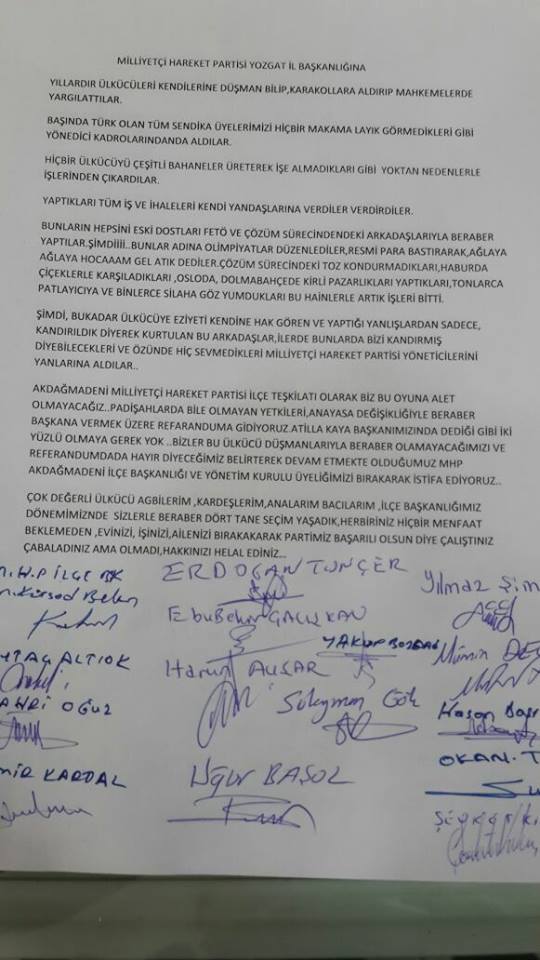 MİLLİYETÇİ HAREKET PARTİSİ YOZGAT İL BAŞKANLIĞINA
YILLARDIR ÜLKÜCÜLERİ KENDİLERİNE DÜŞMAN BİLİP,KARAKOLLARA ALDIRIP MAHKEMELERDE
YARGILATTILAR.
BAŞINDA TÜRK OLAN TÜM SENDİKA ÜYELERİMİZİ HİÇBİR MAKAMA LAYIK GÖRMEDİKLERİ GİBİ
YÖNEDİCİ KADROLARINDANDA ALDILAR.
HİÇBİR ÜLKÜCÜYÜ ÇEŞİTLİ BAHANELER ÜRETEREK İŞE ALMADIKLARI GİBİ YOKTAN NEDENLERLE
İŞLERİNDEN ÇIKARDILAR.
YAPTIKLARI TÜM İŞ VE İHALELERİ KENDİ YANDAŞLARINA VERDİLER VERDİRDİLER.
BUNLARIN HEPSİNİ ESKİ DOSTLARI FETÖ VE ÇÖZÜM SÜRECİNDENDEKİ ARKADAŞLARIYLA BERABER
YAPTILAR.ŞİMDİİİİ..BUNLAR ADINA OLİMPİYATLAR DÜZENLEDİLER,RESMİ PARA BASTIRARAK,AĞLAYA
AĞLAYA HOCAAAM GEL ATIK DEDİLER.ÇÖZÜM SÜRECİNDEKİ TOZ KONDURMADIKLARI,HABURDA
ÇİÇEKLERLE KARŞILADIKLARI ,OSLODA, DOLMABAHÇEDE KİRLİ PAZARLIKLARI YAPTIKLARI,TONLARCA
PATLAYICIYA VE BİNLERCE SİLAHA GÖZ YUMDUKLARI BU HAİNLERLE ARTIK İŞLERİ BİTTİ.
ŞİMDİ, BUKADAR ÜLKÜCÜYE EZİYETİ KENDİNE HAK GÖREN VE YAPTIĞI YANLIŞLARDAN SADECE,
KANDIRILDIK DİYEREK KURTULAN BU ARKADAŞLAR,İLERDE BUNLARDA BİZİ KANDIRMIŞ
DİYEBİLECEKLERİ VE ÖZÜNDE HİÇ SEVMEDİKLERİ MİLLİYETÇİ HAREKET PARTİSİ YÖNETİCİLERİNİ
YANLARINA ALDILAR..
AKDAĞMADENİ MİLLİYETÇİ HAREKET PARTİSİ İLÇE TEŞKİLATI OLARAK BİZ BU OYUNA ALET
OLMAYACAĞIZ..PADİŞAHLARDA BİLE OLMAYAN YETKİLERİ,ANAYASA DEĞİŞİKLİĞİYLE BERABER
BAŞKANA VERMEK ÜZERE REFARANDUMA GİDİYORUZ.ATİLLA KAYA BAŞKANIMIZINDA DEDİĞİ GİBİ İKİ
YÜZLÜ OLMAYA GEREK YOK ..BİZLER BU ÜLKÜCÜ DÜŞMANLARIYLA BERABER OLAMAYACAĞIMIZI VE
REFERANDUMDADA HAYIR DİYECEĞİMİZ BELİRTEREK DEVAM ETMEKTE OLDUĞUMUZ MHP
AKDAĞMADENİ İLÇE BAŞKANLIĞI VE YÖNETİM KURULU ÜYELİĞİMİZİ BIRAKARAK İSTİFA EDİYORUZ..
ÇOK DEĞERLİ ÜLKÜCÜ AGBİLERİM ,KARDEŞLERİM,ANALARIM BACILARIM ,İLÇE BAŞKANLIĞIMIZ
DÖNEMİMİZNDE SİZLERLE BERABER DÖRT TANE SEÇİM YAŞADIK,HERBİRİNİZ HİÇBİR MENFAAT
BEKLEMEDEN ,EVİNİZİ, İŞİNİZİ,AİLENİZİ BIRAKAKARAK PARTİMİZ BAŞARILI OLSUN DİYE ÇALIŞTINIZ
ÇABALADINIZ AMA OLMADI,HAKKINIZI HELAL EDİNİZ..
M.H.P İLÇE BŞK ERDOĞAN TUNÇER Yılmaz Şim
Ebubekir ÇALIŞKAN
ALTIOK Harun AVŞAR YAKUP Mümin
OĞUZ Süleyman Gök Hasan
KARDAL Uğur BAŞOL OKAN.T